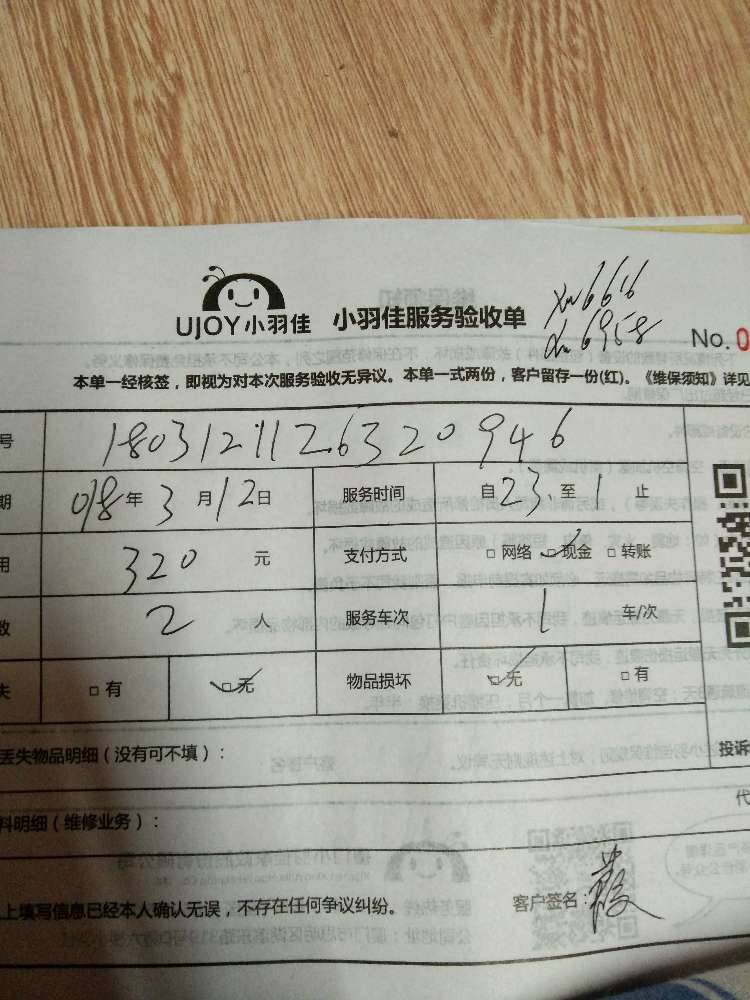 UJOY小羽佳 小羽佳服务验收单
6616
6958
No.0
本单一经核签，即视为对本次服务验收无异议。本单一式两份，客户留存一份(红)。《维保须知》详见
号 1803121126320946
期 018年3月12日 服务时间 自23.至1止
用 320元 支付方式 □网络 □现金 □转账
数 2人 服务车次 1车/次
失 □有 □无 物品损坏 □无 □有
丢失物品明细（没有可不填）：
投诉
代
料明细（维修业务）：
上填写信息已经本人确认无误，不存在任何争议纠纷。 客户签名：